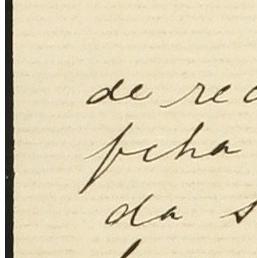 de re
fcha
da s